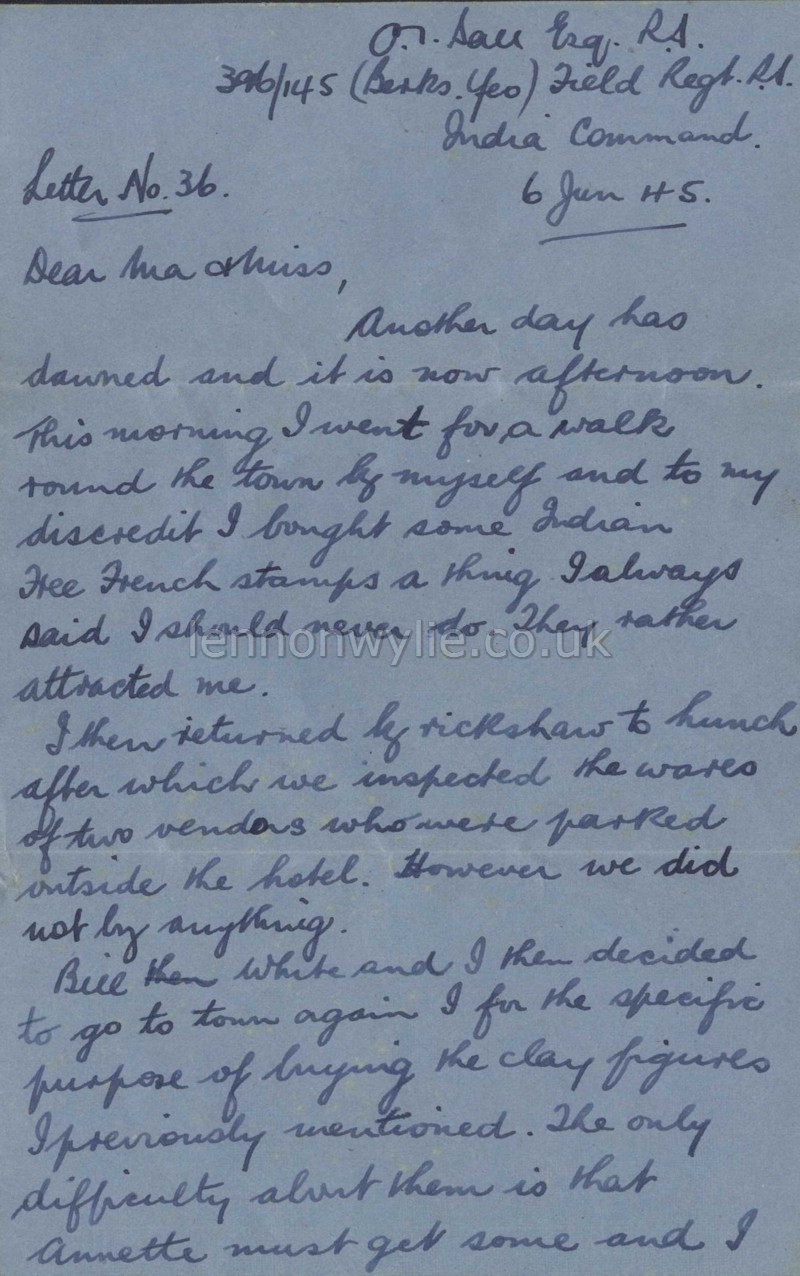 Esq. R.A.
396/145 (Berks. Yeo) Field Regt. R.A.
India Command.
Letter No. 36.
6 Jun 45.
Dear Ma & Miss,
Another day has
dawned and it is now afternoon.
This morning I went for a walk
round the town by myself and to my
discredit I bought some Indian
Free French stamps a thing I always
said I should never do. They rather
attracted me.
I then returned by rickshaw to hunch
after which we inspected the wares
of two vendors who were parked
outside the hotel. However we did
not by anything.
Bill then White and I then decided
to go to town again I for the specific
purpose of buying the clay figures
I previously mentioned. The only
difficulty about them is that
Annette must get some and I
lennonwylie.co.uk